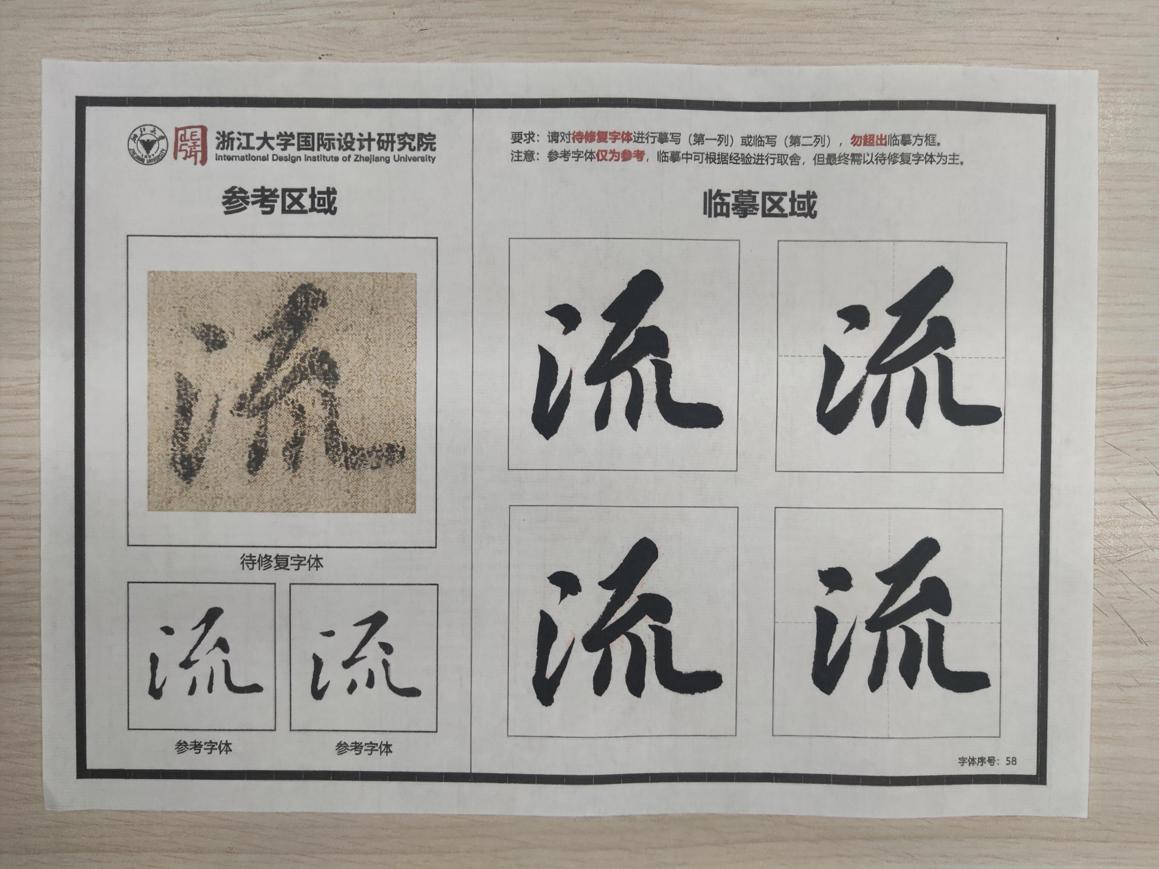 浙江大学国际设计研究院
International Design Institute of Zhejiang University
参考区域
流
待修复字体
流 流
参考字体 参考字体
要求：请对待修复字体进行摹写（第一列）或临写（第二列），勿超出临摹方框。
注意：参考字体仅为参考，临摹中可根据经验进行取舍，但最终需以待修复字体为主。
临摹区域
流 流
流 流
字体序号：58